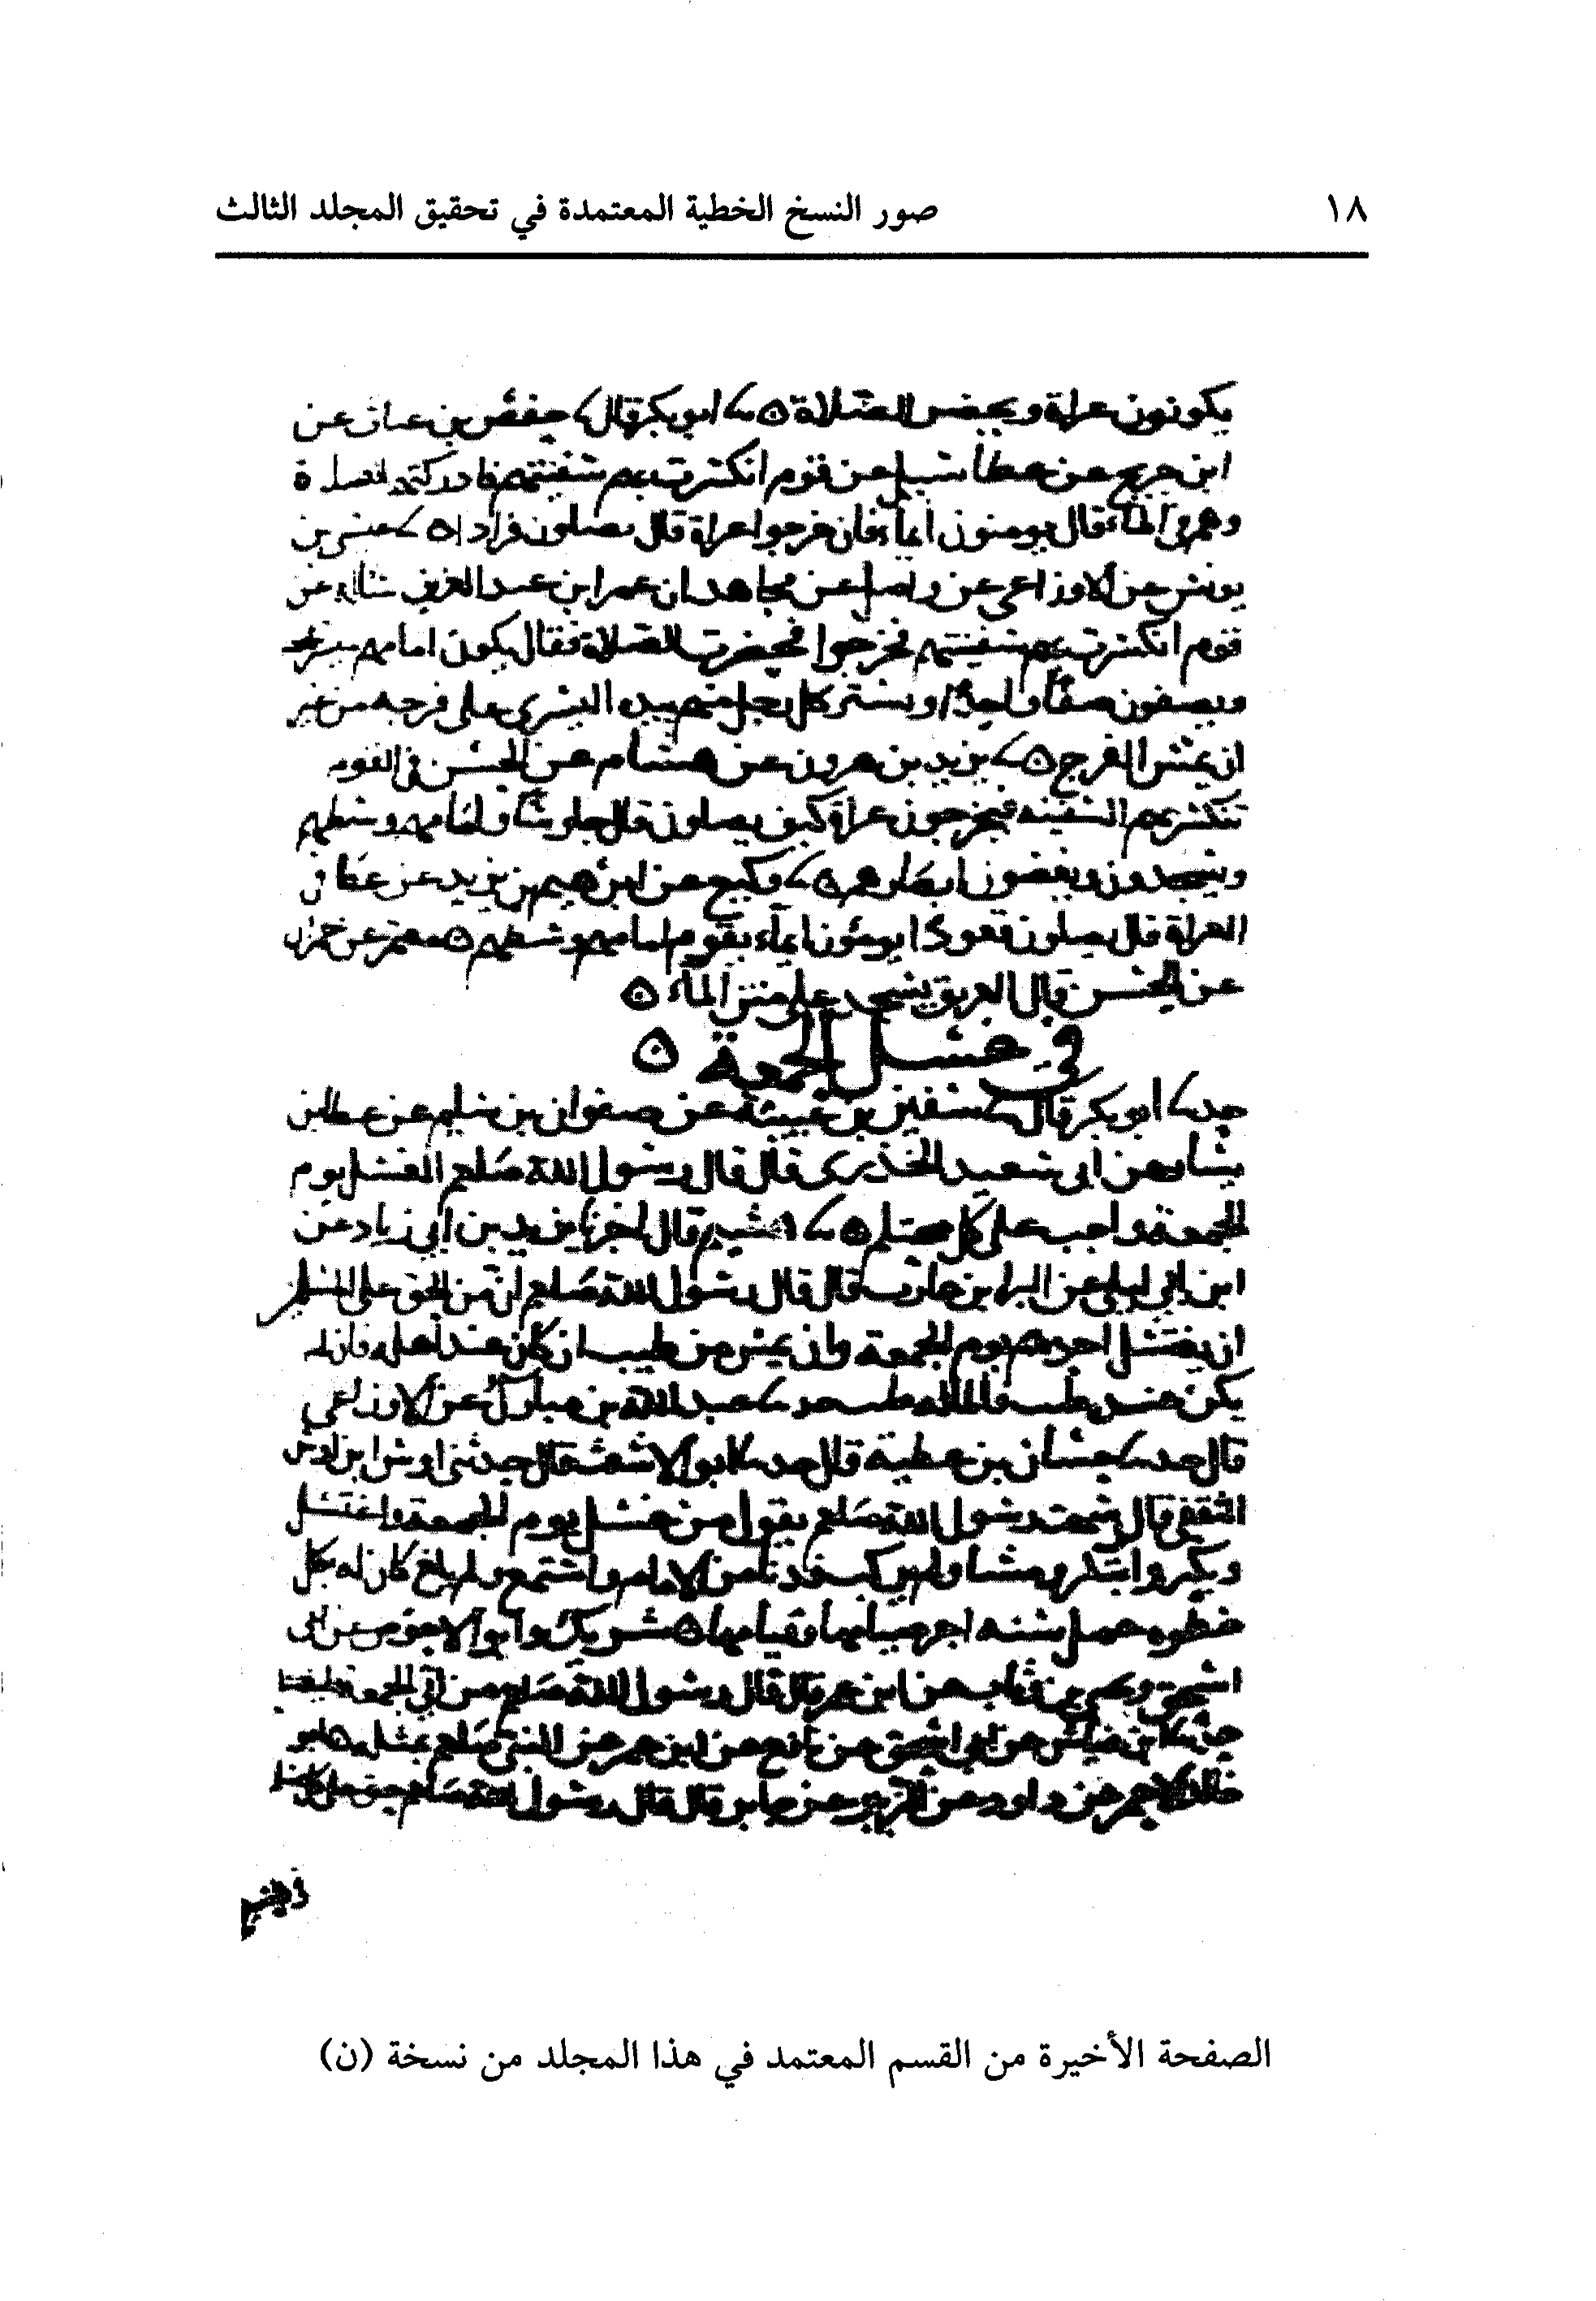 ١٨ صور النسخ الخطية المعتمدة في تحقيق المجلد الثالث
يكونون عراة وتحضر الصلاة ه ابو بكر قال حفص بن غياث عن
ابن جريج عن عطا سيل عن قوم انكسرت بهم سفينتهم فادركتهم الصلاة
وهم في الماء قال يومئون ايماء فان خرجوا عراة قال يصلون فرادا ه عيسى بن
يونس عن الاوزاعي عن واصل عن مجاهد ان عمر ابن عبد العزيز عن
قوم انكسرت بهم سفينتهم فخرجوا فحضرت الصلاة فقال يكون امامهم
ويصفون صفا واحدا ويستتر كل رجل منهم بيده اليسرى على فرجه من غير
ان يمس الفرج ه يزيد بن هرون عن هشام عن الحسن في القوم
تنكسر بهم السفينه فيخرجون عراة كيف يصلون قال جلوسا وامامهم وسطهم
ويسجدون ويغضون ابصارهم ه وكيع عن ابرهيم بن يزيد عن عطا في
العراة قال يصلون قعودا يومئون ايماء يقوم امامهم وسطهم ه معتمر عن
عن الحسن قال الغريق يسجد على متن الماء ه
في غسل الجمعة ه
حدثنا ابو بكر قال سفين بن عيينة عن صفوان بن سليم عن عطا بن
يسار عن ابي سعيد الخذري قال قال رسول الله صلعم الغسل يوم
الجمعة واجب على كل محتلم ه هشيم قال اخبرنا يزيد بن ابي زياد عن
ابن ابي ليلى عن البرا بن عازب قال قال رسول الله صلعم ان من الحق على المسلمين
ان يغتسل احدهم يوم الجمعة وان يمس من طيب ان كان عند اهله فان لم
يكن عندهم طيب فالماء له طيب عبد الله بن مبارك عن الاوزاعي
قال حدثنا حسان بن عطية قال حدثنا ابو الاشعث قال حدثني اوس ابن اوس
الثقفي قال سمعت رسول الله صلعم يقول من غسل يوم الجمعة واغتسل
وبكر وابتكر ومشا ولم يركب فدنا من الامام واستمع ولم يلغ كان له بكل
خطوه عمل سنه اجر صيامها وقيامها ه شريك وابو الاحوص عن ابي
اسحق ويحيى بن وثاب عن ابن عمر قال قال رسول الله صلعم من اتى الجمعة فليغتسل
عن ابي اسحق عن نافع عن ابن عمر عن النبي صلعم بمثله
خالد الاحمر عن داود عن ابي الزبير عن جابر قال قال رسول الله صلعم حق على كل
الصفحة الأخيرة من القسم المعتمد في هذا المجلد من نسخة (ن)